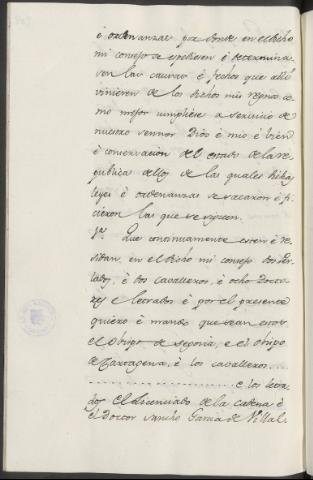 é ordenanzas por donde en el dicho
mi consejo se espidiesen é determina
sen las causas é fechos que allí
vinieren de los dichos mis regnos co
mo mejor cumpliese a servicio de
nuestro sennor Dios é mio é bien
é conservacion del estado de la re
publica dellos de las quales dichas
leyes é ordenanzas se sacaron é fi
cieron las que se siguen.
Que continuamente esten é re
sidan en el dicho mi consejo dos Per
lados, é dos cavalleros, é ocho Docto
res é letrados é por el presente
quiero é mando que sean estos
el Obispo de Segovia, e el obispo
de Cartagena, é los cavalleros....
.................... e los letra
dos el Licenciado de la cadena é
el Doctor Sancho Garcia de Villal